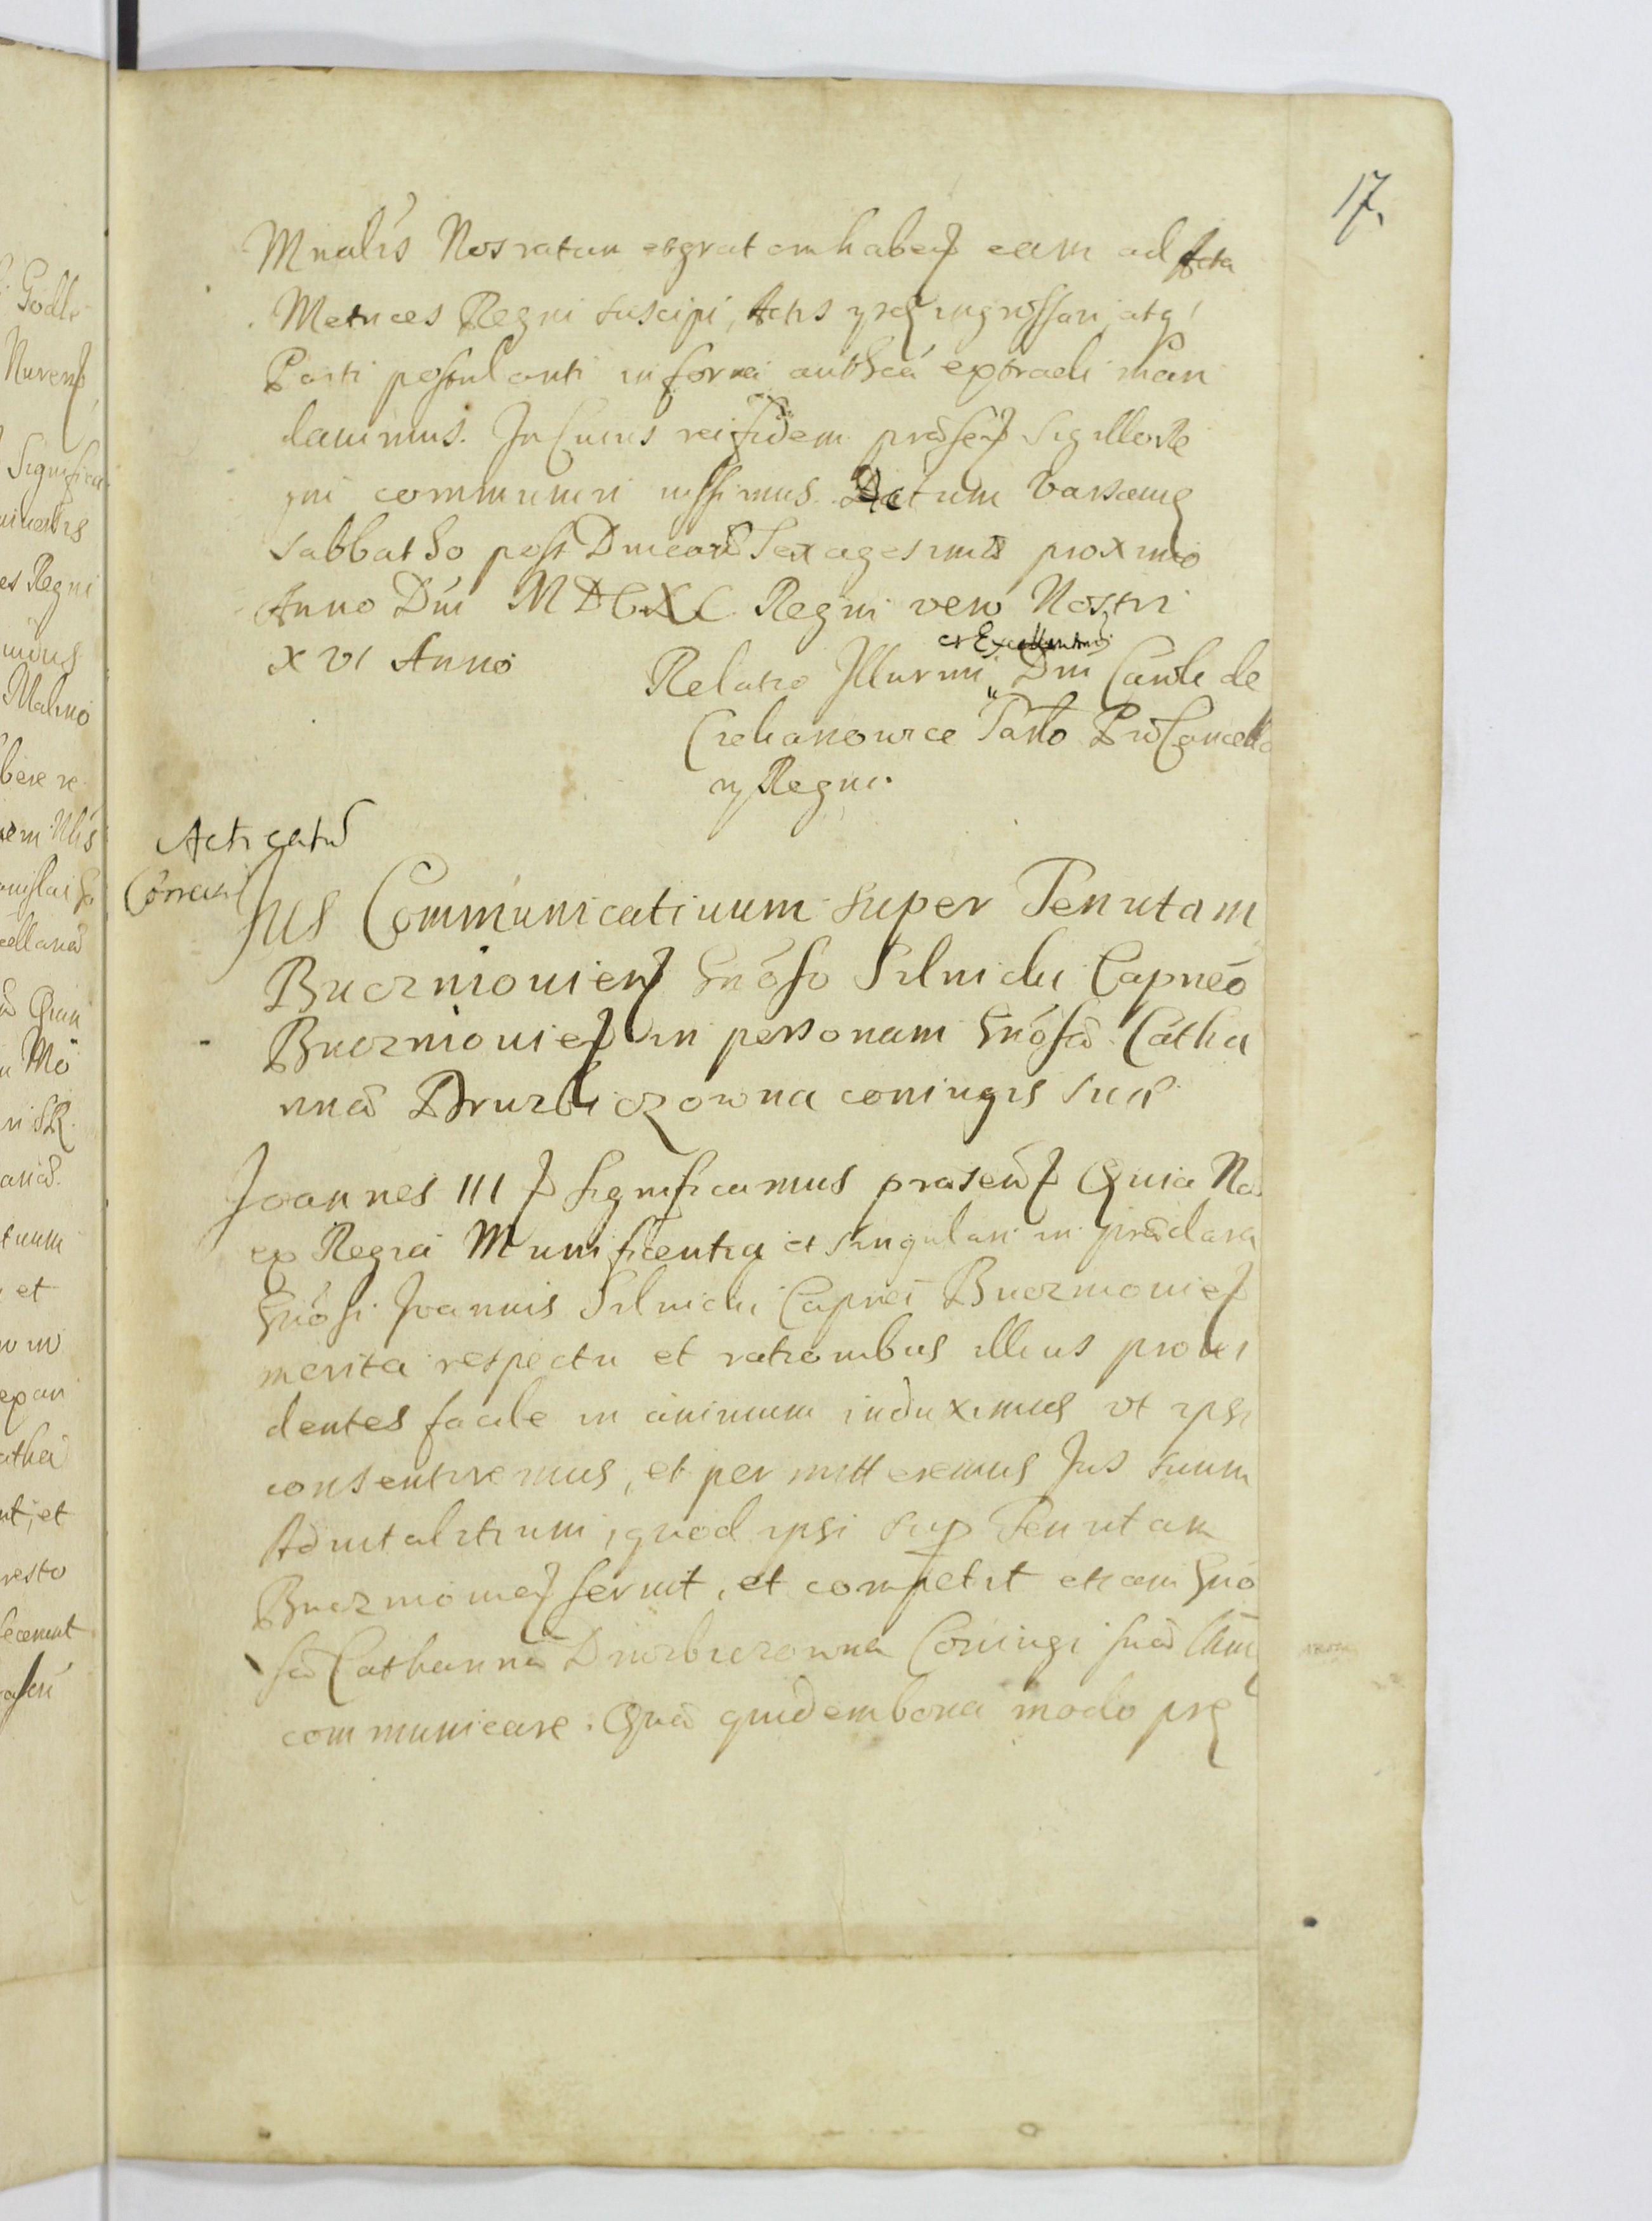 17.
Mnalis Nos ratam et gratam haben̄ eam ad Acta
Metrices Regni suscipi, Actis ꝗ ingrossari, atq
Parti postulanti in forma autthca extradi man
davimus. In Cuius rei fidem præsen̄ Sigillo Re
gni communiri iussimus. Datum Varsaviæ
Sabbatho post Dnicam Sexagesimæ proximo
Anno Dni MDCXC Regni vero Nostri
XVI Anno
et Excellentmi
Relatio Illurmi Dni Caroli de
Ciechanowice Tarło ProCancella
ry Regni.
Acticatū
Jus Communicativum super Tenutam
Buczniovien̄ Gnoso Silnicki Capneo
Buczniovien̄ in personam Gnosæ Catha
rinæ Druzbiczowna coniugis suæ
Joannes III significamus præsen̄ Quia Nos
ex Regia Munificentia et singulari in præclara
Gnosi Joannis Silnicki Capnei Buczniovien̄
merita respectu et rationibus illius provi
dentes facile in animum induximus ut ipsi
consentiremus, et permitteremus Jus suum
Advitalitium, quod ipsi sup Tenutam
Buczniovien̄ servit, et competit etiam Gno
sæ Catharinæ Druzbiczowna Coniugi suæ
communicare. Quæ quidem bona modo